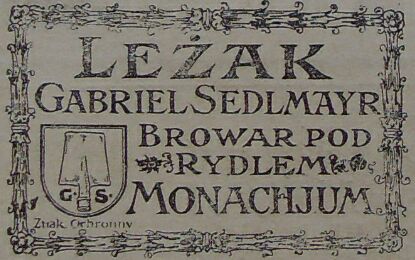 LEŻAK
GABRIEL SEDLMAYR
BROWAR POD
RYDLEM
MONACHJUM
G S
Znak Ochronny